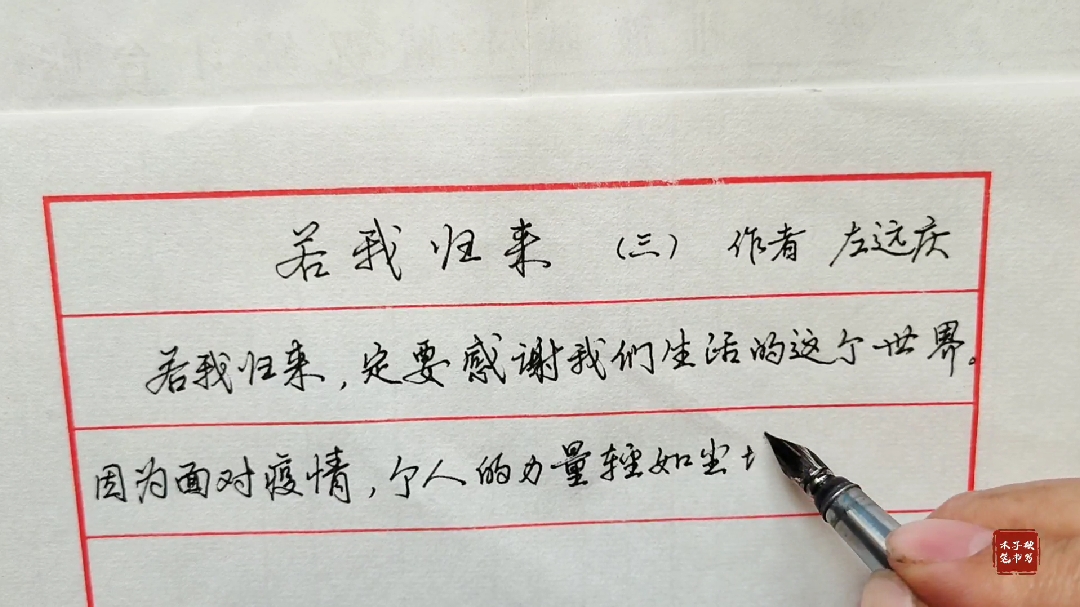 若我归来 (三) 作者 左远庆
若我归来,定要感谢我们生活的这个世界。
因为面对疫情,个人的力量轻如尘
木子硬
笔书写